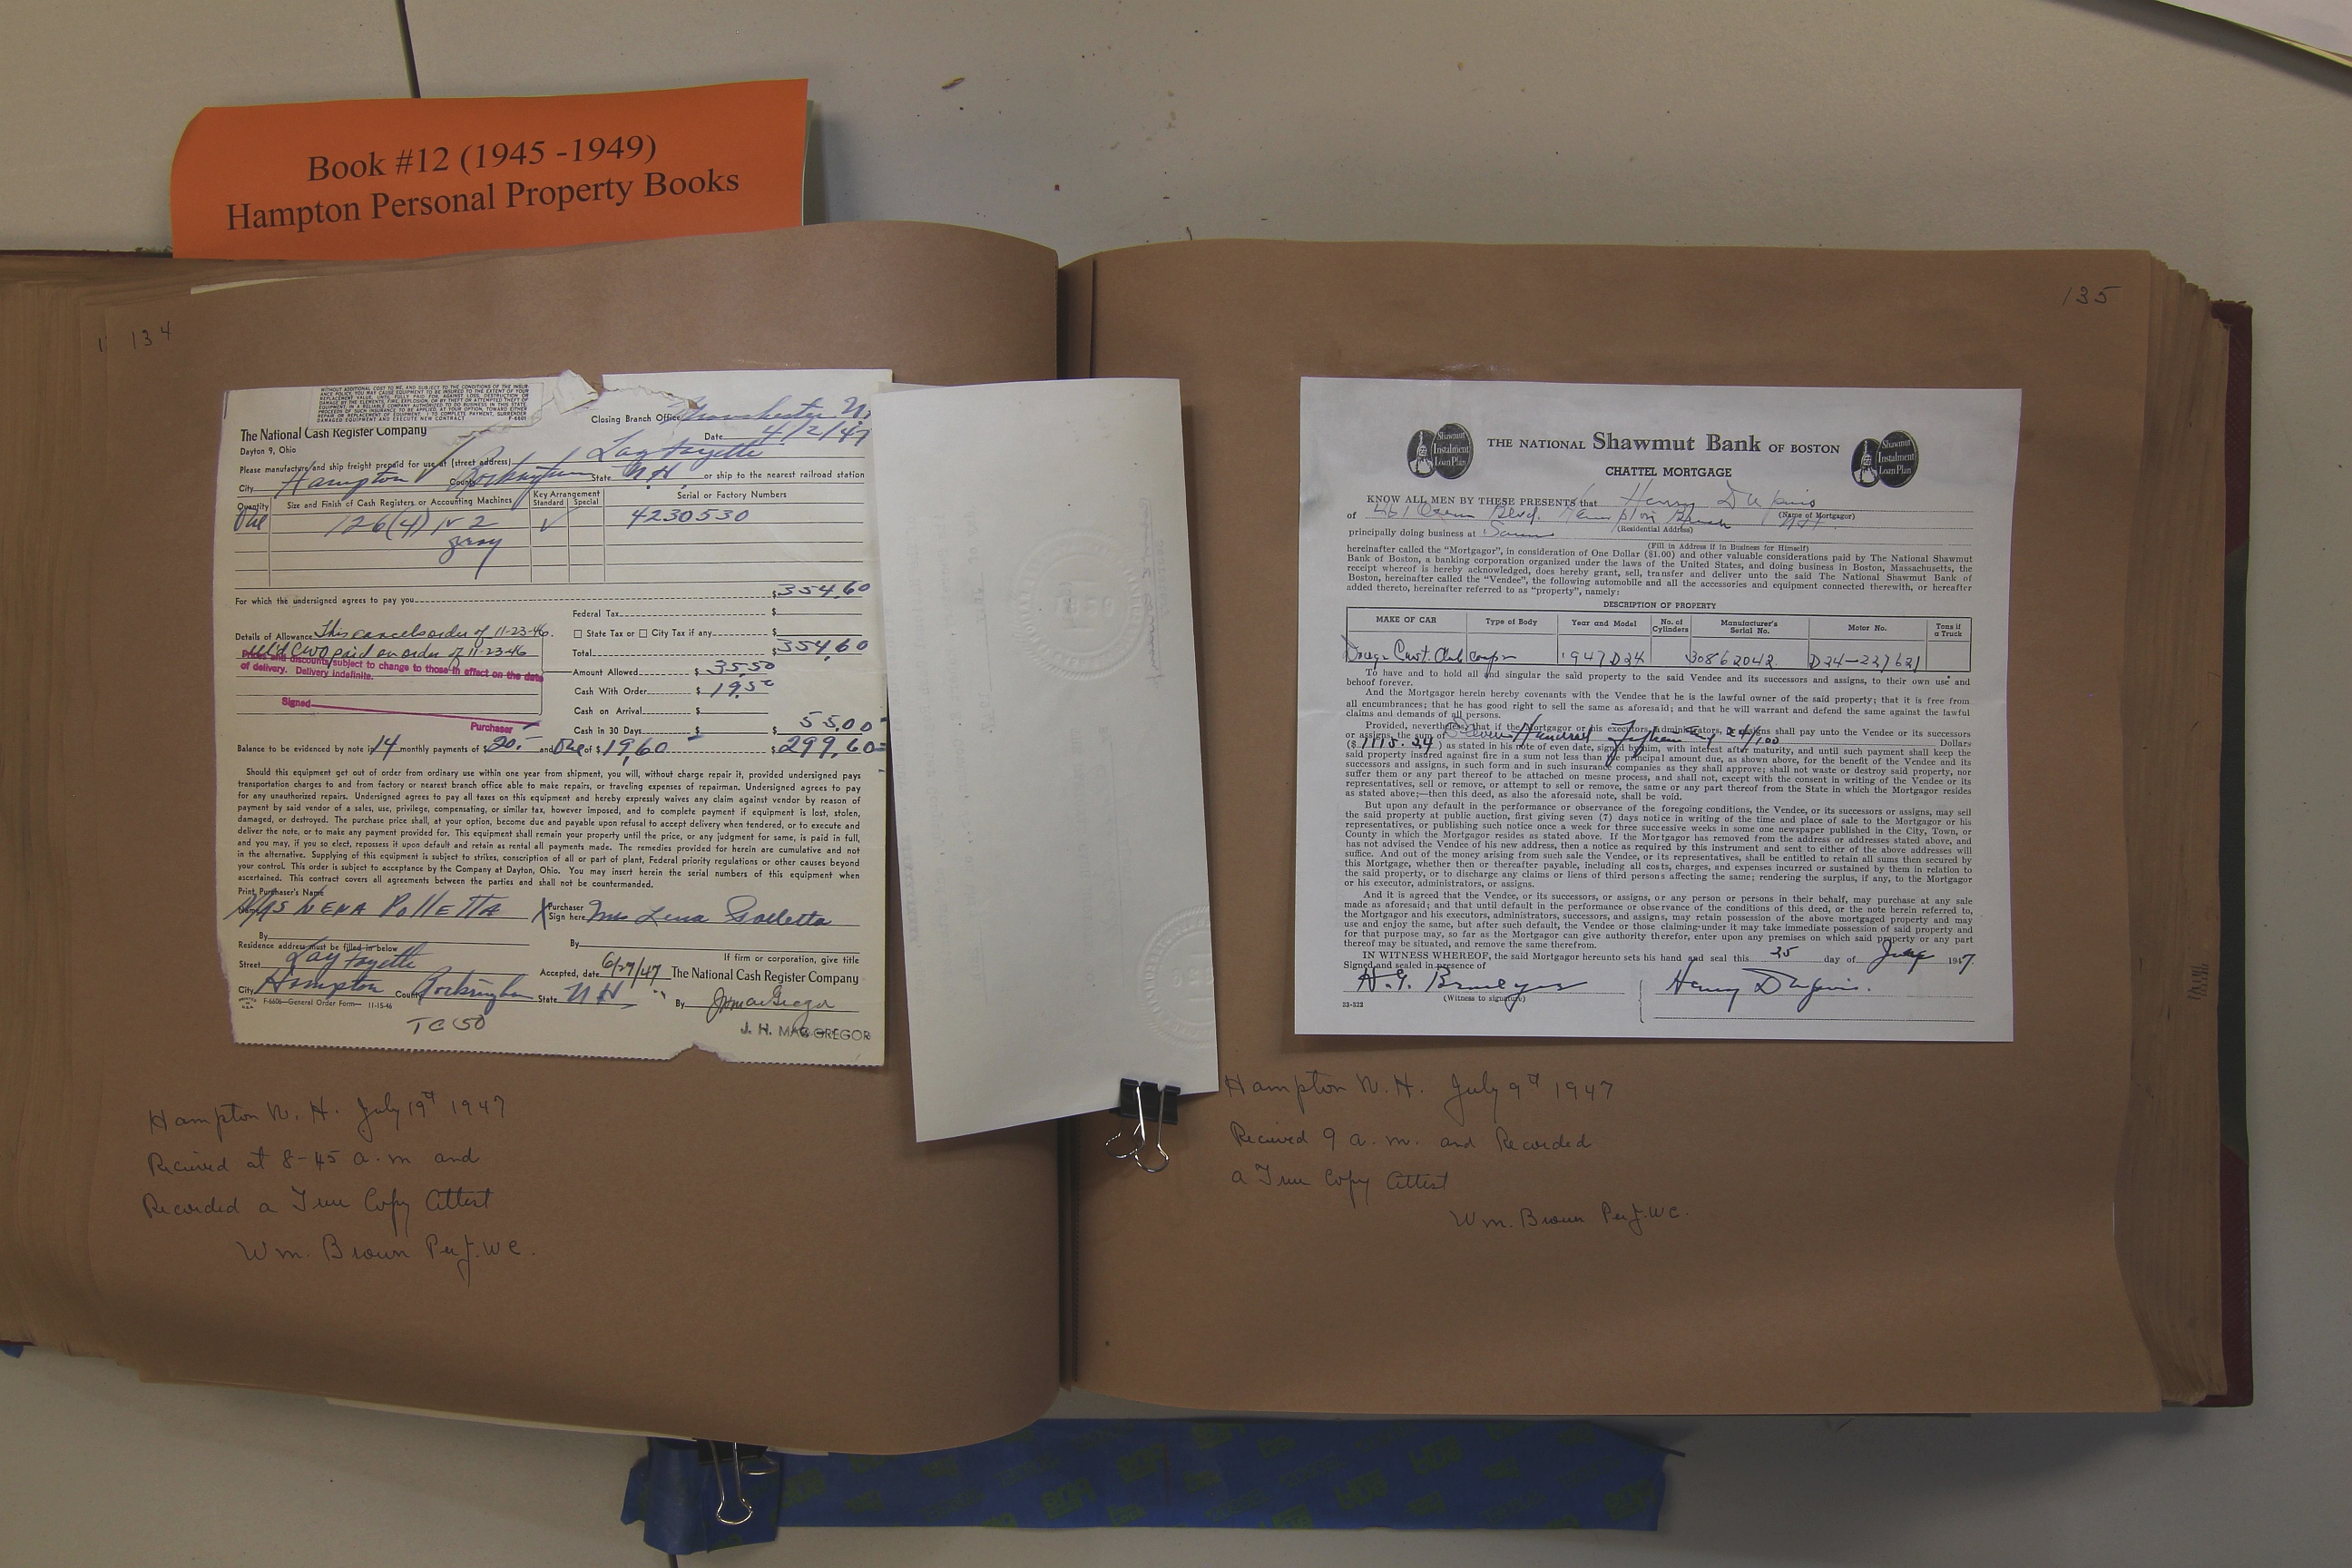 Book #12 (1945 -1949)
Hampton Personal Property Books
134
WITHOUT ADDITIONAL COST TO ME, AND SUBJECT TO THE CONDITIONS OF THE INSUR-
ANCE POLICY, YOU MAY CAUSE EQUIPMENT TO BE INSURED TO THE EXTENT OF YOUR
REPLACEMENT VALUE, UNTIL FULLY PAID FOR, AGAINST LOSS, DESTRUCTION OR
DAMAGE BY THE ELEMENTS, FIRE, EXPLOSION, OR BY THEFT OR ATTEMPTED THEFT OF
EQUIPMENT, IN A RELIABLE COMPANY AUTHORIZED TO DO BUSINESS IN THIS STATE,
PROCEEDS OF SUCH INSURANCE TO BE APPLIED, AT YOUR OPTION, TOWARD EITHER
REPAIR OR REPLACEMENT OF EQUIPMENT, I TO COMPLETE PAYMENT, SURRENDER
DAMAGED EQUIPMENT AND EXECUTE NEW CONTRACT
Closing Branch Office Manchester N.
The National Cash Register Company
Date 4/2/47
Dayton 9, Ohio
Please manufacture and ship freight prepaid for use at (street address) Lafayette
City Hampton County Rockingham State N.H. or ship to the nearest railroad station
Quantity Size and Finish of Cash Registers or Accounting Machines Key Arrangement Standard Special Serial or Factory Numbers
One 126(4) 4230530
gray
For which the undersigned agrees to pay you $354.60
Federal Tax $
Details of Allowance This cancels order of 11-23-46. State Tax or City Tax if any $
CWO paid on order of 11-23-46 Total $354.60
Prices and discounts subject to change to those in effect on the date
of delivery. Delivery indefinite.
Amount Allowed $ 35.50
Cash With Order $ 19.50
Signed
Cash on Arrival $
Purchaser
Cash in 30 Days $ $ 55.00
Balance to be evidenced by note in 14 monthly payments of $ 20.- and One of $ 19.60 $ 299.60
Should this equipment get out of order from ordinary use within one year from shipment, you will, without charge repair it, provided undersigned pays
transportation charges to and from factory or nearest branch office able to make repairs, or traveling expenses of repairman. Undersigned agrees to pay
for any unauthorized repairs. Undersigned agrees to pay all taxes on this equipment and hereby expressly waives any claim against vendor by reason of
payment by said vendor of a sales, use, privilege, compensating, or similar tax, however imposed, and to complete payment if equipment is lost, stolen,
damaged, or destroyed. The purchase price shall, at your option, become due and payable upon refusal to accept delivery when tendered, or to execute and
deliver the note, or to make any payment provided for. This equipment shall remain your property until the price, or any judgment for same, is paid in full,
and you may, if you so elect, repossess it upon default and retain as rental all payments made. The remedies provided for herein are cumulative and not
in the alternative. Supplying of this equipment is subject to strikes, conscription of all or part of plant, Federal priority regulations or other causes beyond
your control. This order is subject to acceptance by the Company at Dayton, Ohio. You may insert herein the serial numbers of this equipment when
ascertained. This contract covers all agreements between the parties and shall not be countermanded.
Print Purchaser's Name
Mrs LENA POLLETTA X Purchaser Sign here Mrs Lena Polletta
By By
Residence address must be filled in below If firm or corporation, give title
Street Lafayette Accepted, date 6/27/47 The National Cash Register Company
City Hampton County Rockingham State NH By J H MacGregor
F-6606—General Order Form— 11-15-46
TC 50
J. H. MAC GREGOR
Hampton N. H. July 19th 1947
Recieved at 8-45 a.m and
Recorded a True Copy Attest
Wm. Brown Per J.W.C.
135
Shawmut Instalment Loan Plan
THE NATIONAL Shawmut Bank OF BOSTON
Shawmut Instalment Loan Plan
CHATTEL MORTGAGE
KNOW ALL MEN BY THESE PRESENTS that Henry Dupuis
(Name of Mortgagor)
of 461 Ocean Blvd. Hampton Beach N.H.
(Residential Address)
principally doing business at Same
(Fill in Address if in Business for Himself)
hereinafter called the "Mortgagor", in consideration of One Dollar ($1.00) and other valuable considerations paid by The National Shawmut
Bank of Boston, a banking corporation organized under the laws of the United States, and doing business in Boston, Massachusetts, the
receipt whereof is hereby acknowledged, does hereby grant, sell, transfer and deliver unto the said The National Shawmut Bank of
Boston, hereinafter called the "Vendee", the following automobile and all the accessories and equipment connected therewith, or hereafter
added thereto, hereinafter referred to as "property", namely:
DESCRIPTION OF PROPERTY
MAKE OF CAR Type of Body Year and Model No. of Cylinders Manufacturer's Serial No. Motor No. Tons if a Truck
Dodge Cust. Club coupe 1947 D24 30862042 D24-227621
To have and to hold all and singular the said property to the said Vendee and its successors and assigns, to their own use and
behoof forever.
And the Mortgagor herein hereby covenants with the Vendee that he is the lawful owner of the said property; that it is free from
all encumbrances; that he has good right to sell the same as aforesaid; and that he will warrant and defend the same against the lawful
claims and demands of all persons.
Provided, nevertheless, that if the Mortgagor or his executors, administrators, or assigns shall pay unto the Vendee or its successors
or assigns, the sum of Eleven Hundred Fifteen 24/100 Dollars
($ 1115.24 ) as stated in his note of even date, signed by him, with interest after maturity, and until such payment shall keep the
said property insured against fire in a sum not less than the principal amount due, as shown above, for the benefit of the Vendee and its
successors and assigns, in such form and in such insurance companies as they shall approve; shall not waste or destroy said property, nor
suffer them or any part thereof to be attached on mesne process, and shall not, except with the consent in writing of the Vendee or its
representatives, sell or remove, or attempt to sell or remove, the same or any part thereof from the State in which the Mortgagor resides
as stated above;—then this deed, as also the aforesaid note, shall be void.
But upon any default in the performance or observance of the foregoing conditions, the Vendee, or its successors or assigns, may sell
the said property at public auction, first giving seven (7) days notice in writing of the time and place of sale to the Mortgagor or his
representatives, or publishing such notice once a week for three successive weeks in some one newspaper published in the City, Town, or
County in which the Mortgagor resides as stated above. If the Mortgagor has removed from the address or addresses stated above, and
has not advised the Vendee of his new address, then a notice as required by this instrument and sent to either of the above addresses will
suffice. And out of the money arising from such sale the Vendee, or its representatives, shall be entitled to retain all sums then secured by
this Mortgage, whether then or thereafter payable, including all costs, charges, and expenses incurred or sustained by them in relation to
the said property, or to discharge any claims or liens of third persons affecting the same; rendering the surplus, if any, to the Mortgagor
or his executor, administrators, or assigns.
And it is agreed that the Vendee, or its successors, or assigns, or any person or persons in their behalf, may purchase at any sale
made as aforesaid; and that until default in the performance or observance of the conditions of this deed, or the note herein referred to,
the Mortgagor and his executors, administrators, successors, and assigns, may retain possession of the above mortgaged property and may
use and enjoy the same, but after such default, the Vendee or those claiming under it may take immediate possession of said property and
for that purpose may, so far as the Mortgagor can give authority therefor, enter upon any premises on which said property or any part
thereof may be situated, and remove the same therefrom.
IN WITNESS WHEREOF, the said Mortgagor hereunto sets his hand and seal this 25 day of June 1947.
Signed and sealed in presence of
(Witness to signature) Henry Dupuis.
33-322
Hampton N. H. July 9th 1947
Recieved 9 a.m. and Recorded
a True Copy Attest
Wm. Brown Per J.W.C.